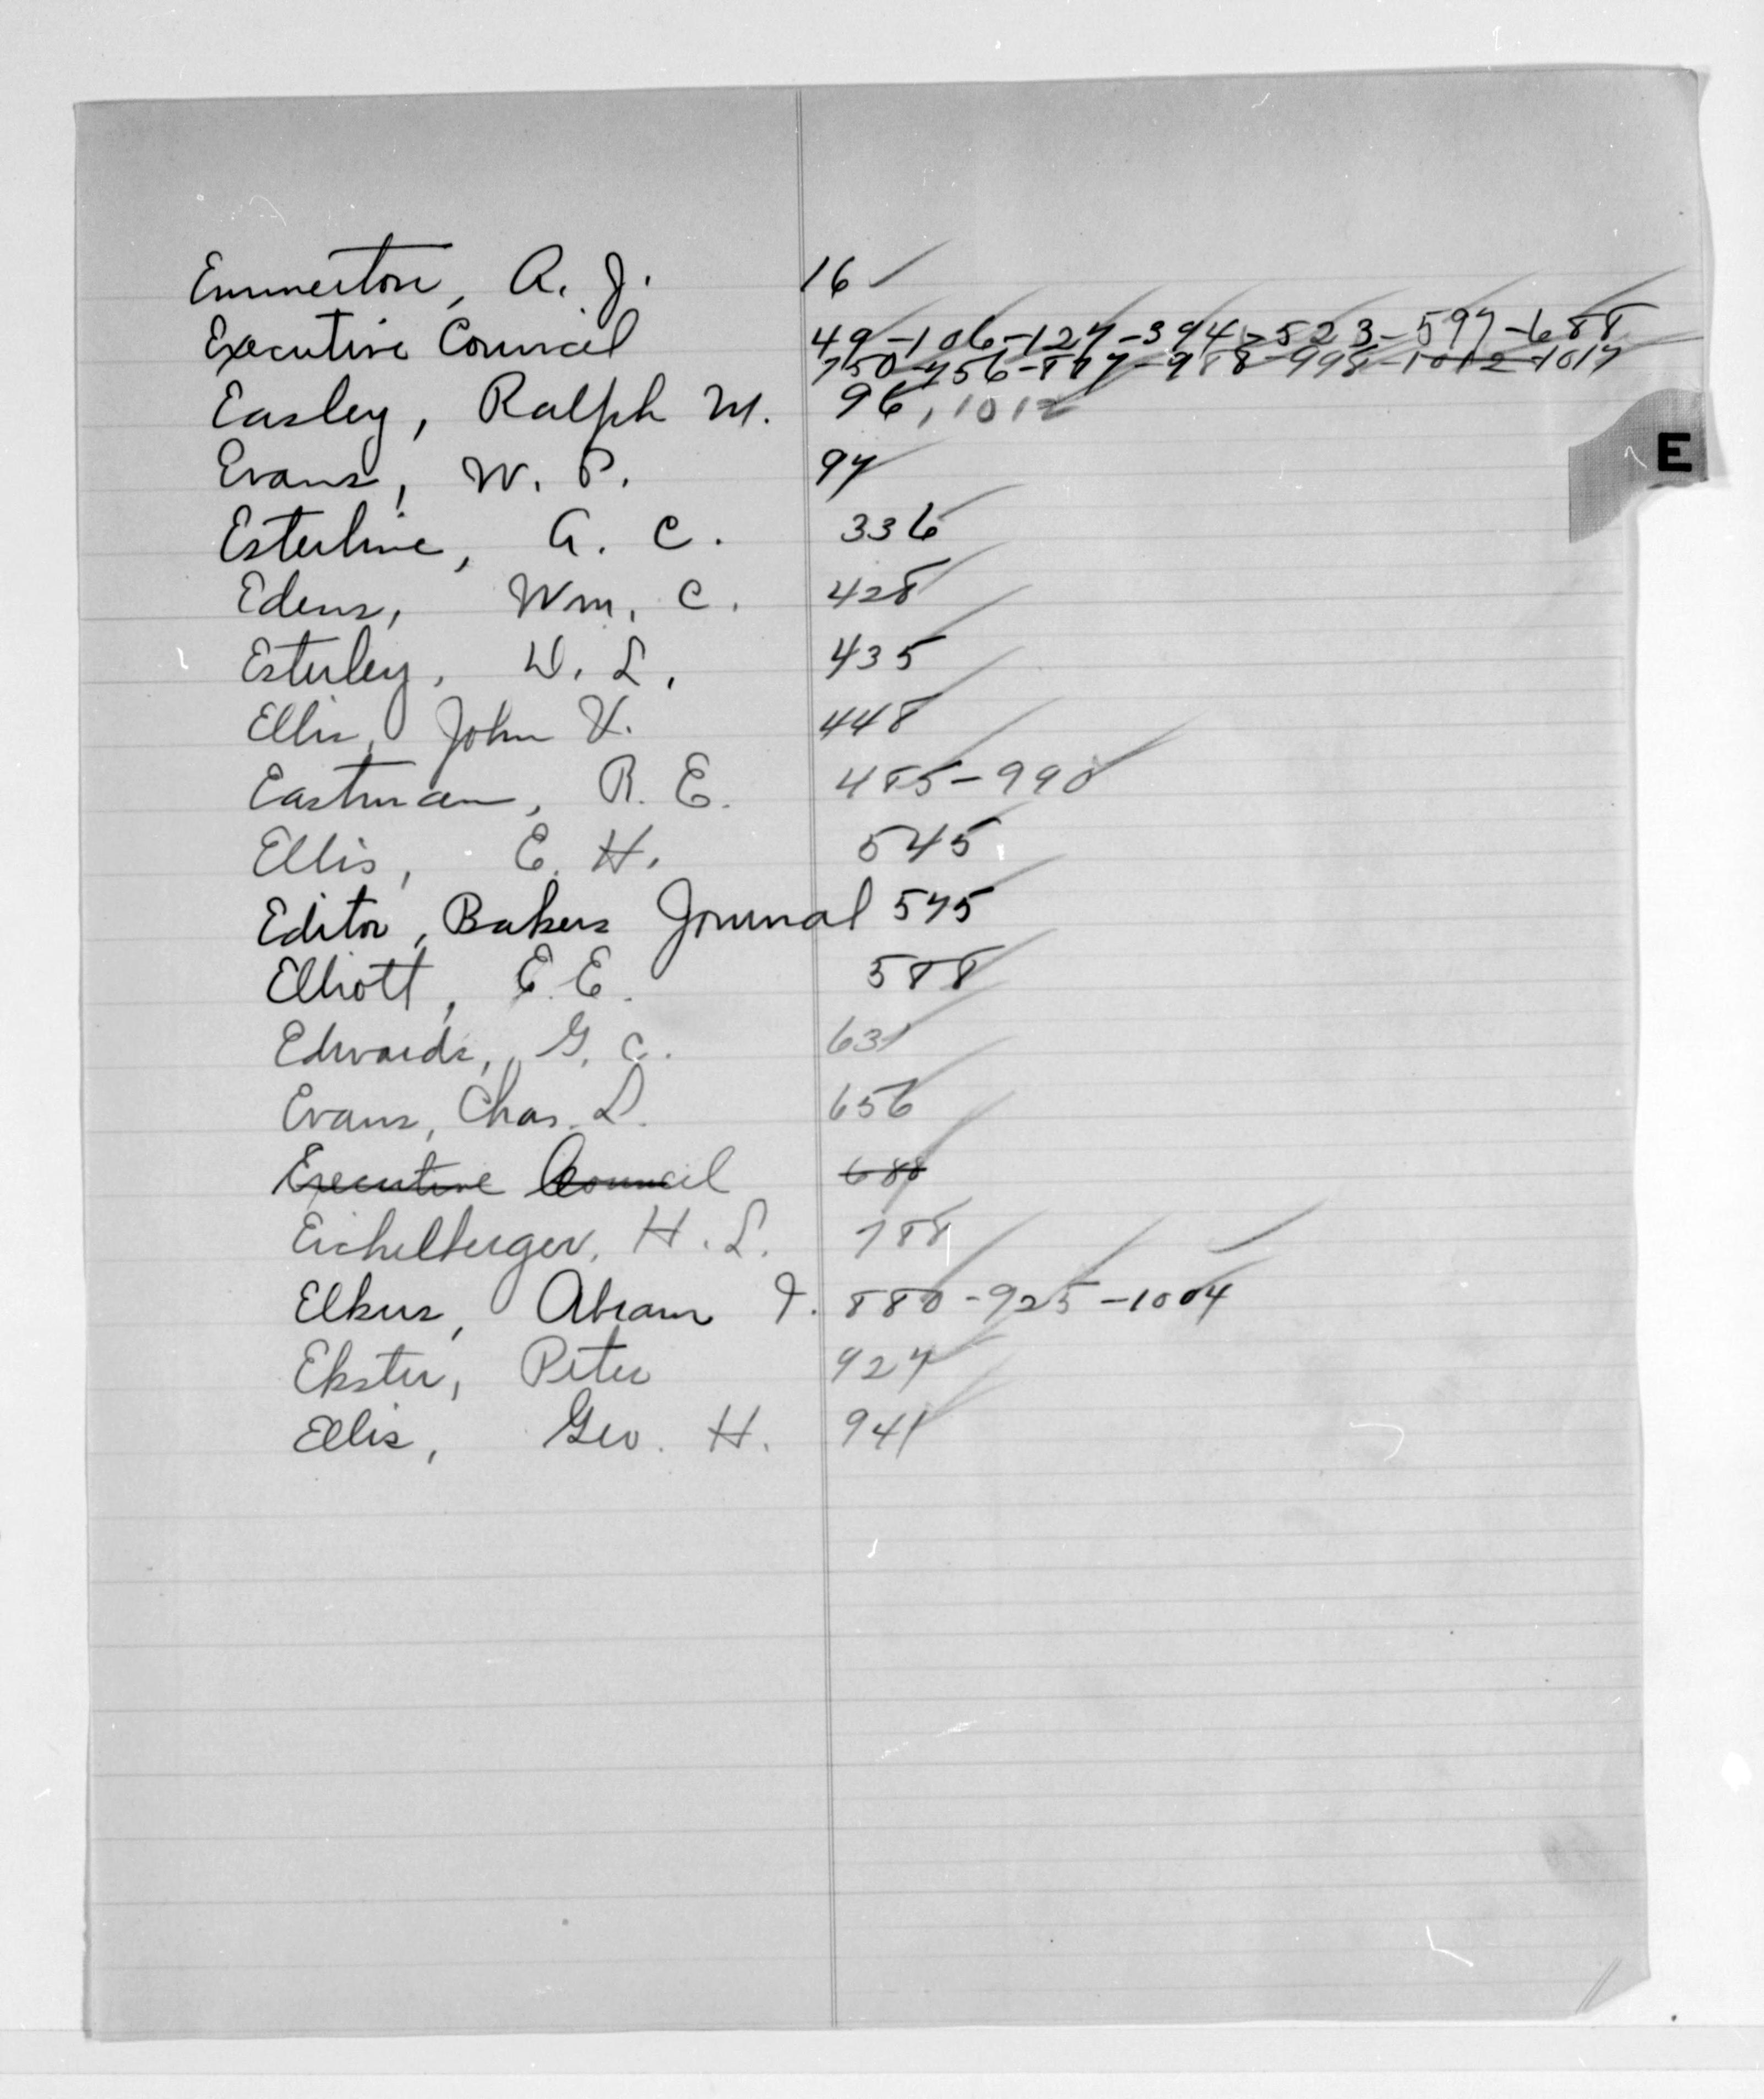 Emmerton, A. J. 16
Executive Council 49-106-127-394-523-597-688
750-756-887-988-998-1012-1017
Easley, Ralph M. 96, 1012
Evans, W. P. 97
E
Esterline, G. C. 336
Edens, Wm. C. 428
Esterley, W. L. 435
Ellis, John V. 448
Eastman, R. E. 485-990
Ellis, E. H. 545
Editor, Bakers Journal 575
Elliott, E. E. 588
Edwards, G. C. 631
Evans, Chas. L. 656
Executive Council 688
Eichelberger, H. L. 788
Elkus, Abram I. 880-925-1004
Ekster, Peter 927
Ellis, Geo. H. 941